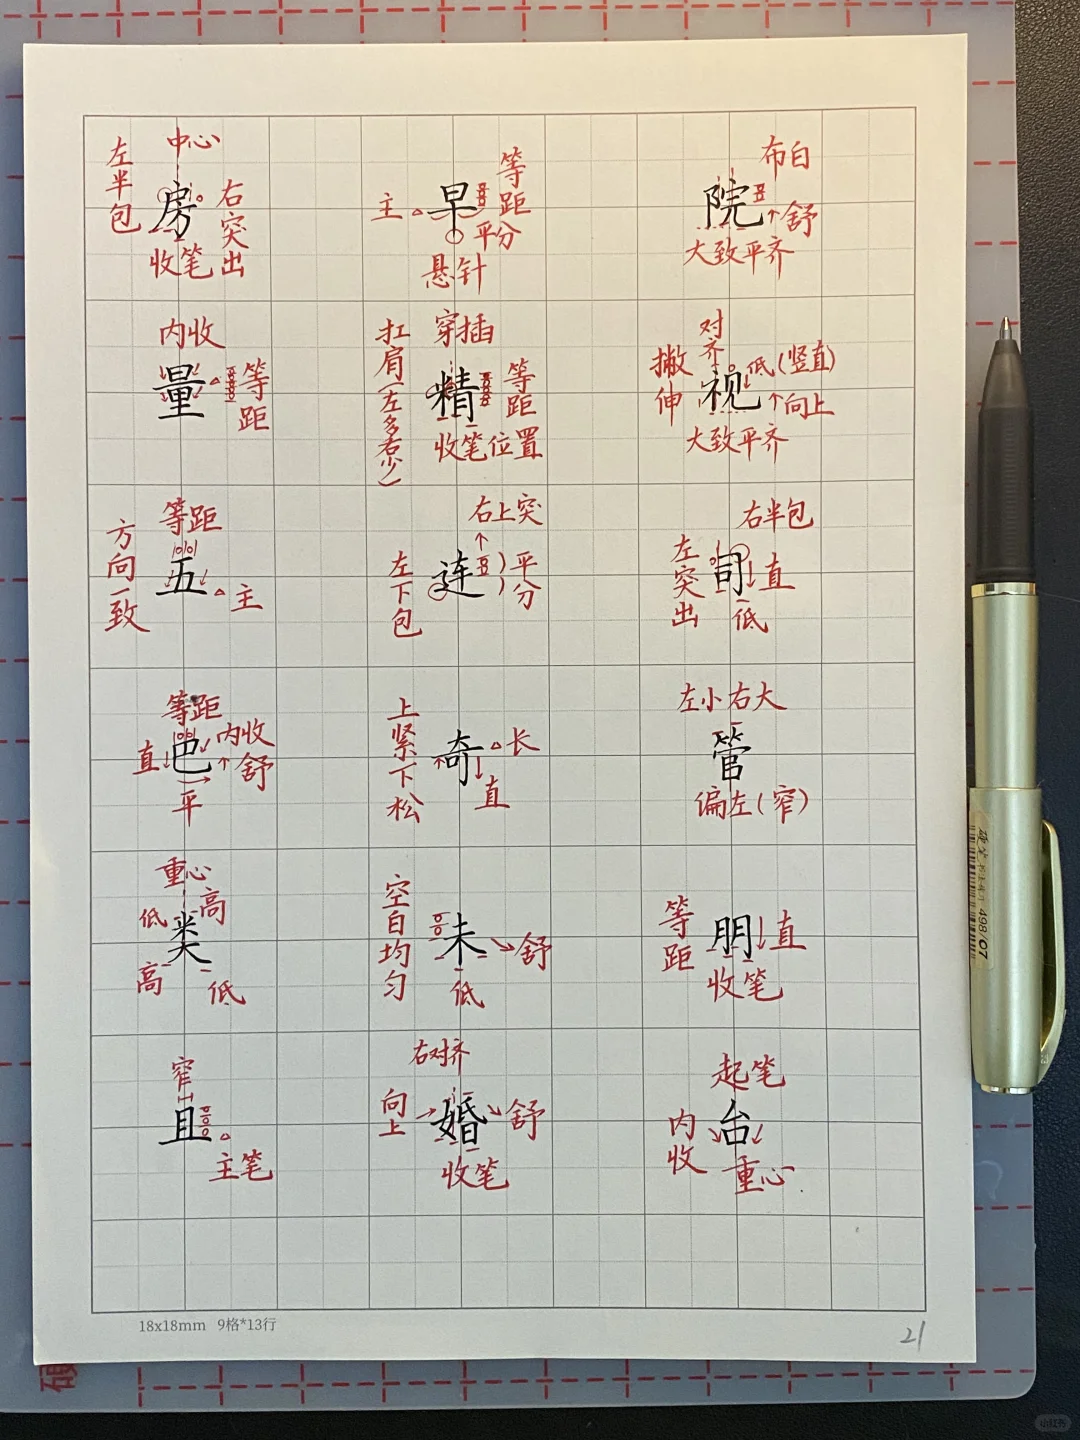 中心
左半包
房
右突出
收笔
等距
主
早
平分
悬针
布白
院
舒
大致平齐
内收
量
等距
穿插
扛肩(左多右少)
精
等距
收笔位置
对齐
撇伸
视
低(竖直)
向上
大致平齐
等距
方向一致
五
主
右上突
左下包
连
平分
右半包
左突出
司
直
低
等距
直
巴
内收
舒
平
上紧下松
奇
长
直
左小右大
管
偏左(窄)
重心
低
高
类
高
低
空白均匀
未
舒
低
等距
朋
直
收笔
窄
且
主笔
右对齐
向上
婚
舒
收笔
起笔
内收
台
重心
18x18mm 9格*13行
21
498/07
小红书